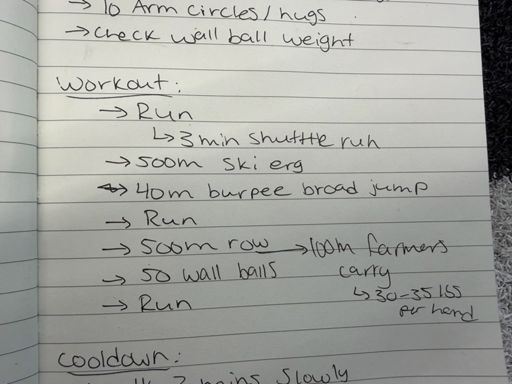 → 10 Arm circles/hugs
→ check wall ball weight
Workout:
→ Run
↳ 3 min shuttle run
→ 500m ski erg
→ 40m burpee broad jump
→ Run
→ 500m row → 100m farmers carry
↳ 30-35 lbs per hand
→ 50 wall balls
→ Run
Cooldown:
2 mins slowly